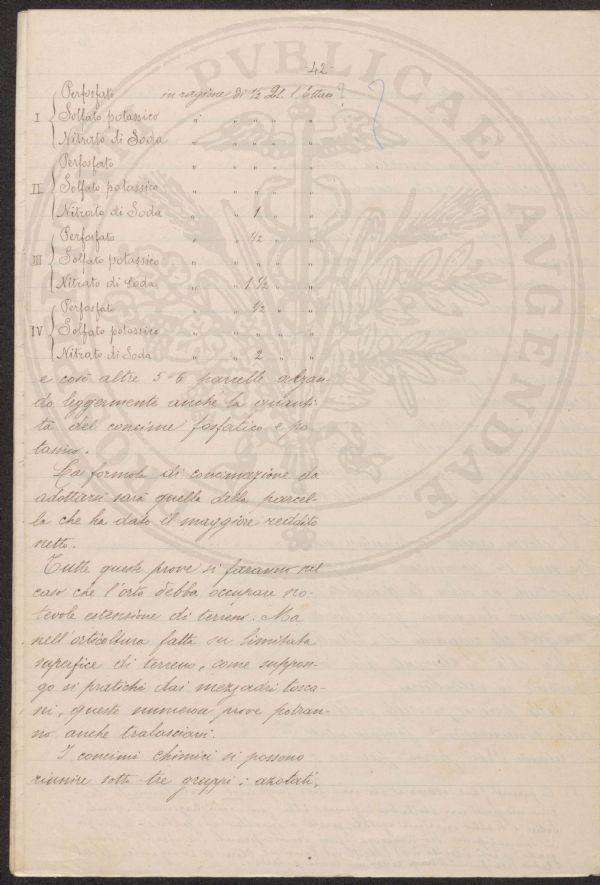 -42-
Perfosfato in ragione di ½ Ql. l'Ettaro?
I Solfato potassico " " " " "
Nitrato di Soda " " " " "
Perfosfato " " " " "
II Solfato potassico " " " " "
Nitrato di Soda " " 1 " "
Perfosfato " " ½ " "
III Solfato potassico " " " " "
Nitrato di Soda " " 1 ½ " "
Perfosfato " " ½ " "
IV Solfato potassico " " " " "
Nitrato di Soda " " 2 " "
e così altre 5-6 parcelle alzan-
do leggermente anche la quanti-
tà del concime fosfatico e po-
tassico.
La formola di concimazione da
adottarsi sarà quella della parcel-
la che ha dato il maggiore reddito
netto.
Tutte queste prove si faranno nel
caso che l'orto debba occupare no-
tevole estensione di terreno. Ma
nell'orticoltura fatta su limitata
superfice di terreno, come suppon-
go si pratichi dai mezzadri tosca-
ni, queste numerose prove potran-
no anche tralasciarsi.
I concimi chimici si possono
riunire sotto tre gruppi: azotati,
PVBLICAE AVGENDAE